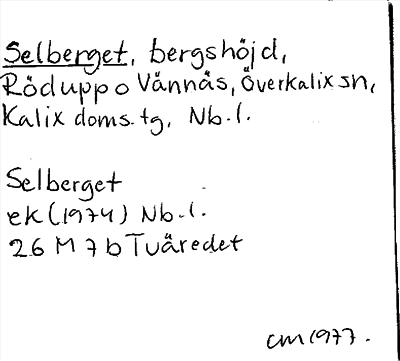 Selberget, bergshöjd,
Röduppo Vännäs, Överkalix sn,
Kalix doms.tg, Nb.l.
Selberget
ek (1974) Nb.l.
26 M 7 b Tväredet
cm 1977.